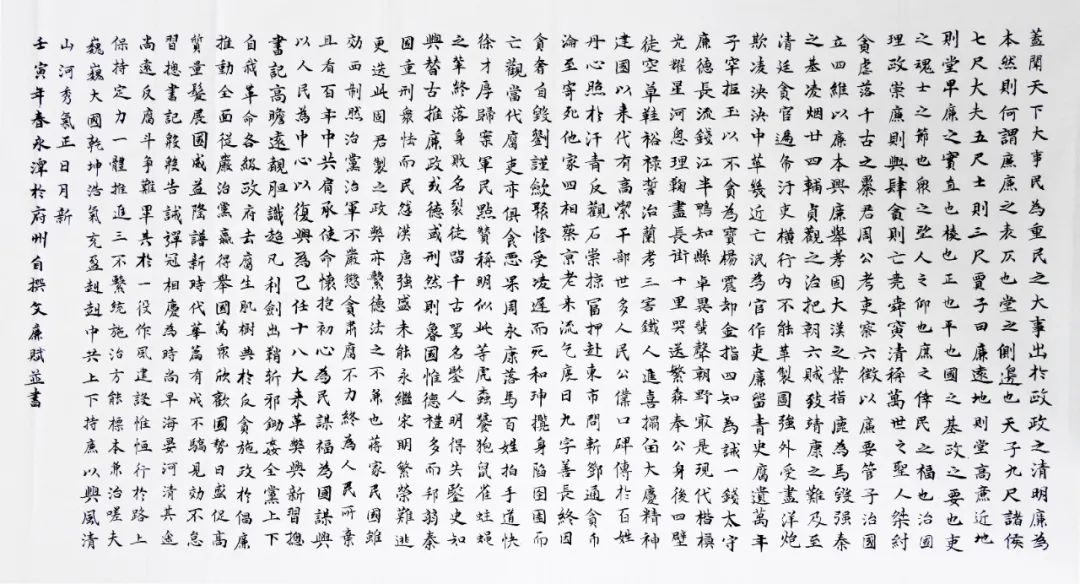 蓋聞天下大事民為重民之大事出於政政之清明廉為
本然則何謂廉廉之表仄也堂之側邊也天子九尺諸侯
七尺大夫五尺士則三尺賈子曰廉遠地則堂高廉近地
則堂卑廉之實直也棱也正也平也國之基政之要也吏
之魂士之節也眾之望人之仰也庶之倖民之福也治國
理政崇廉則興肆貪則亡堯舜寅清稱萬世之聖人桀紂
貪虐落千古之暴君周公考吏察六徵以廉要管子治國
立四維以廉本興廉舉孝固大漢之業指鹿為馬毀强秦
之基凌烟廿四輔貞觀之治把朝六賊致靖康之難及至
清廷貪官遍佈汙吏橫行內不能革製圖強外受盡洋炮
欺凌泱泱中華幾近亡汎為官作吏廉留青史腐遺萬年
子罕拒玉以不貪為寶楊震却金指四知為誡一錢太守
廉德長流錢江半鴨知縣卓異蜚聲朝野最是現代楷模
光耀星河恩理鞠盡長街十里哭送繁森奉公身後四壁
徒空草鞋裕祿誓治蘭考三害鐵人進喜揚大慶精神
建國以来代有高潔干部世多人民公僕口碑傳於百姓
丹心照於汗青反觀石崇掠富押赴東市問斬鄧通貪币
淪至寄死他家四相蔡京老来流乞度日九字善長終因
貪奢自毀劉謹斂聚慘受凌遲而死和珅攬身陷囹圄而
亡觀當代腐吏亦俱食悪果周永康落馬百姓拍手道快
徐才厚歸案軍民點贊稱明似此等虎蟲饕狍鼠雀蛀蝇
之輩終落身敗名裂徒留千古罵名鑒人明得失鑒史知
興替古推廉政或德或刑然則魯國惟德禮多而邦弱秦
國重刑眾怯而民怨漢唐強盛未能永繼宋明繁榮難逃
更迭此固君製之政弊亦繫德法之不兼也蔣家民國雖
効西制然治黨治軍不嚴懲貪肅腐不力終為人民所棄
且看百年中共肩承使命懷抱初心為民謀福為國謀興
以人民為中心以復興為己任十八大来革弊興新習總
書記高瞻遠覩胆識超凡利劍出鞘斬邪鋤奸全黨上下
自我革命各級政府去腐生肌樹典於反貪施政於倡廉
推動全面從嚴治黨贏得舉國萬眾欣歡國勢日盛促高
質量發展國威益隆譜新時代華篇有成不驕見効不怠
習總書記殷殷告誡彈冠相慶為時尚早海晏河清其途
尚遠反腐斗争難畢其於一役作風建設惟恒行於路上
保持定力一體推進三不繫統施治方能標本兼治嗟夫
巍巍大國乾坤浩氣充盈赳赳中共上下持廉以興風清
山河秀氣正日月新
壬寅年春永潭於府州自撰文廉賦並書